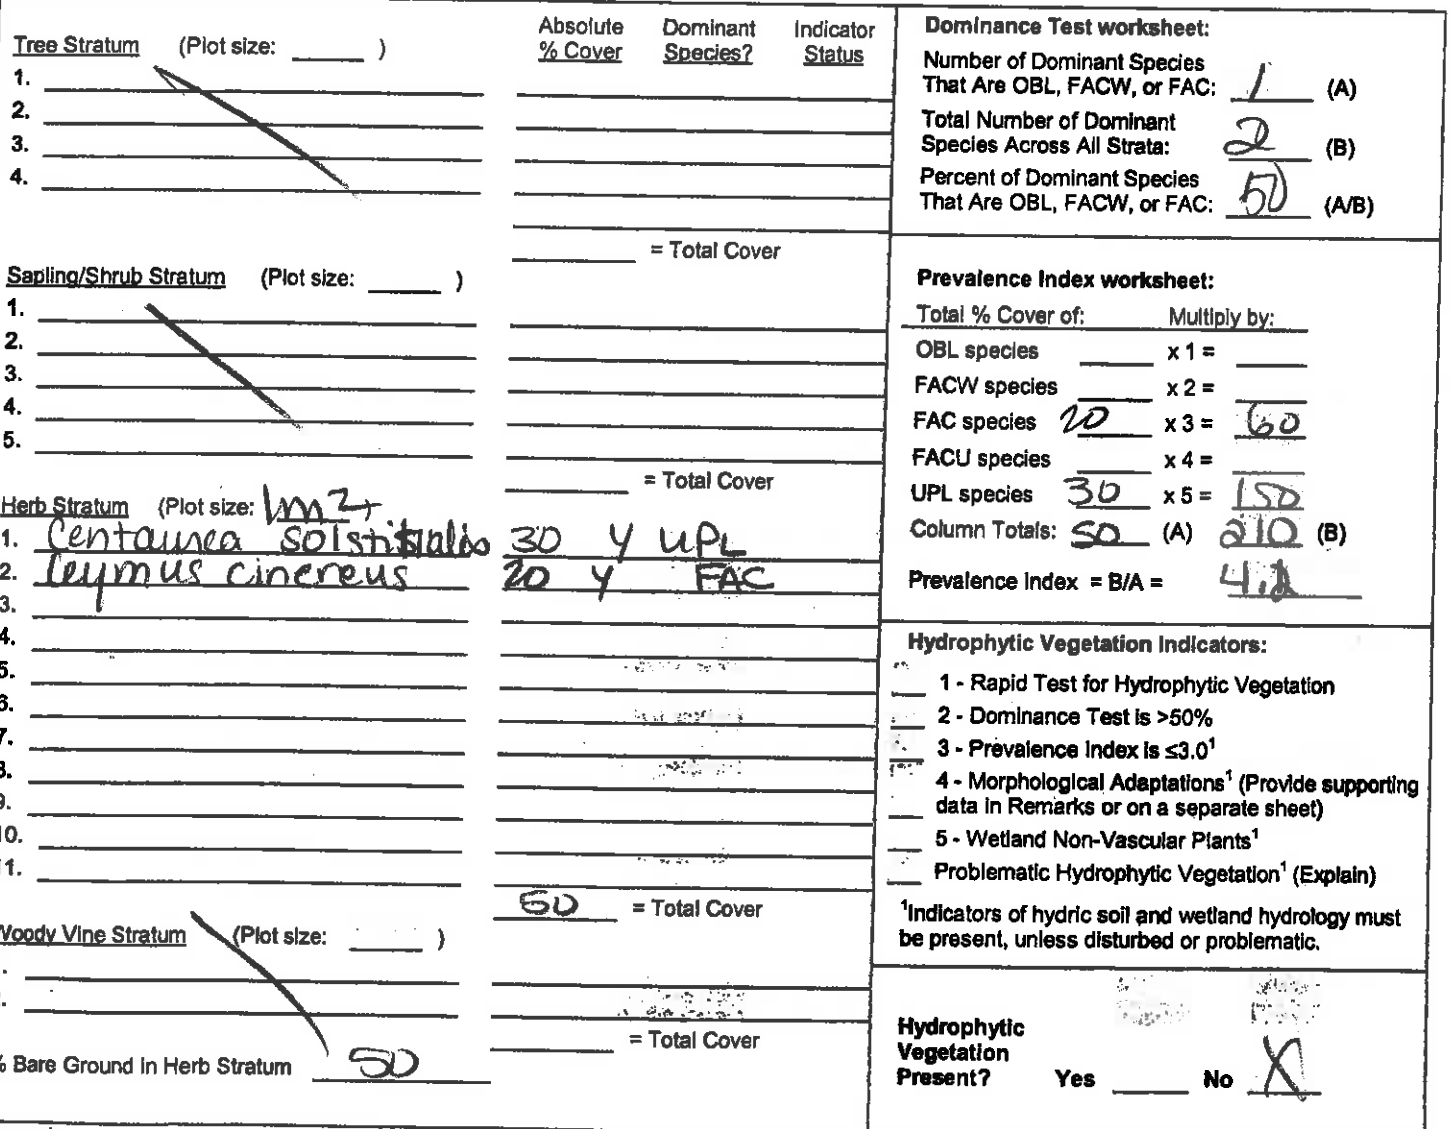 Absolute Dominant Indicator
Tree Stratum (Plot size: ______ ) % Cover Species? Status
1.
2.
3.
4.
= Total Cover
Sapling/Shrub Stratum (Plot size: ______ )
1.
2.
3.
4.
5.
= Total Cover
Herb Stratum (Plot size: 1m2
1. Centaurea solstitialis 30 Y UPL
2. Leymus cinereus 20 Y FAC
3.
4.
5.
6.
7.
8.
9.
10.
11.
50 = Total Cover
Woody Vine Stratum (Plot size: )
= Total Cover
% Bare Ground in Herb Stratum 50
Dominance Test worksheet:
Number of Dominant Species
That Are OBL, FACW, or FAC: 1 (A)
Total Number of Dominant
Species Across All Strata: 2 (B)
Percent of Dominant Species
That Are OBL, FACW, or FAC: 50 (A/B)
Prevalence Index worksheet:
Total % Cover of: Multiply by:
OBL species ______ x 1 = ______
FACW species ______ x 2 = ______
FAC species 20 x 3 = 60
FACU species ______ x 4 = ______
UPL species 30 x 5 = 150
Column Totals: 50 (A) 210 (B)
Prevalence Index = B/A = 4.2
Hydrophytic Vegetation Indicators:
1 - Rapid Test for Hydrophytic Vegetation
2 - Dominance Test is >50%
3 - Prevalence Index is ≤3.0¹
4 - Morphological Adaptations¹ (Provide supporting
data in Remarks or on a separate sheet)
5 - Wetland Non-Vascular Plants¹
Problematic Hydrophytic Vegetation¹ (Explain)
¹Indicators of hydric soil and wetland hydrology must
be present, unless disturbed or problematic.
Hydrophytic
Vegetation
Present? Yes ______ No X